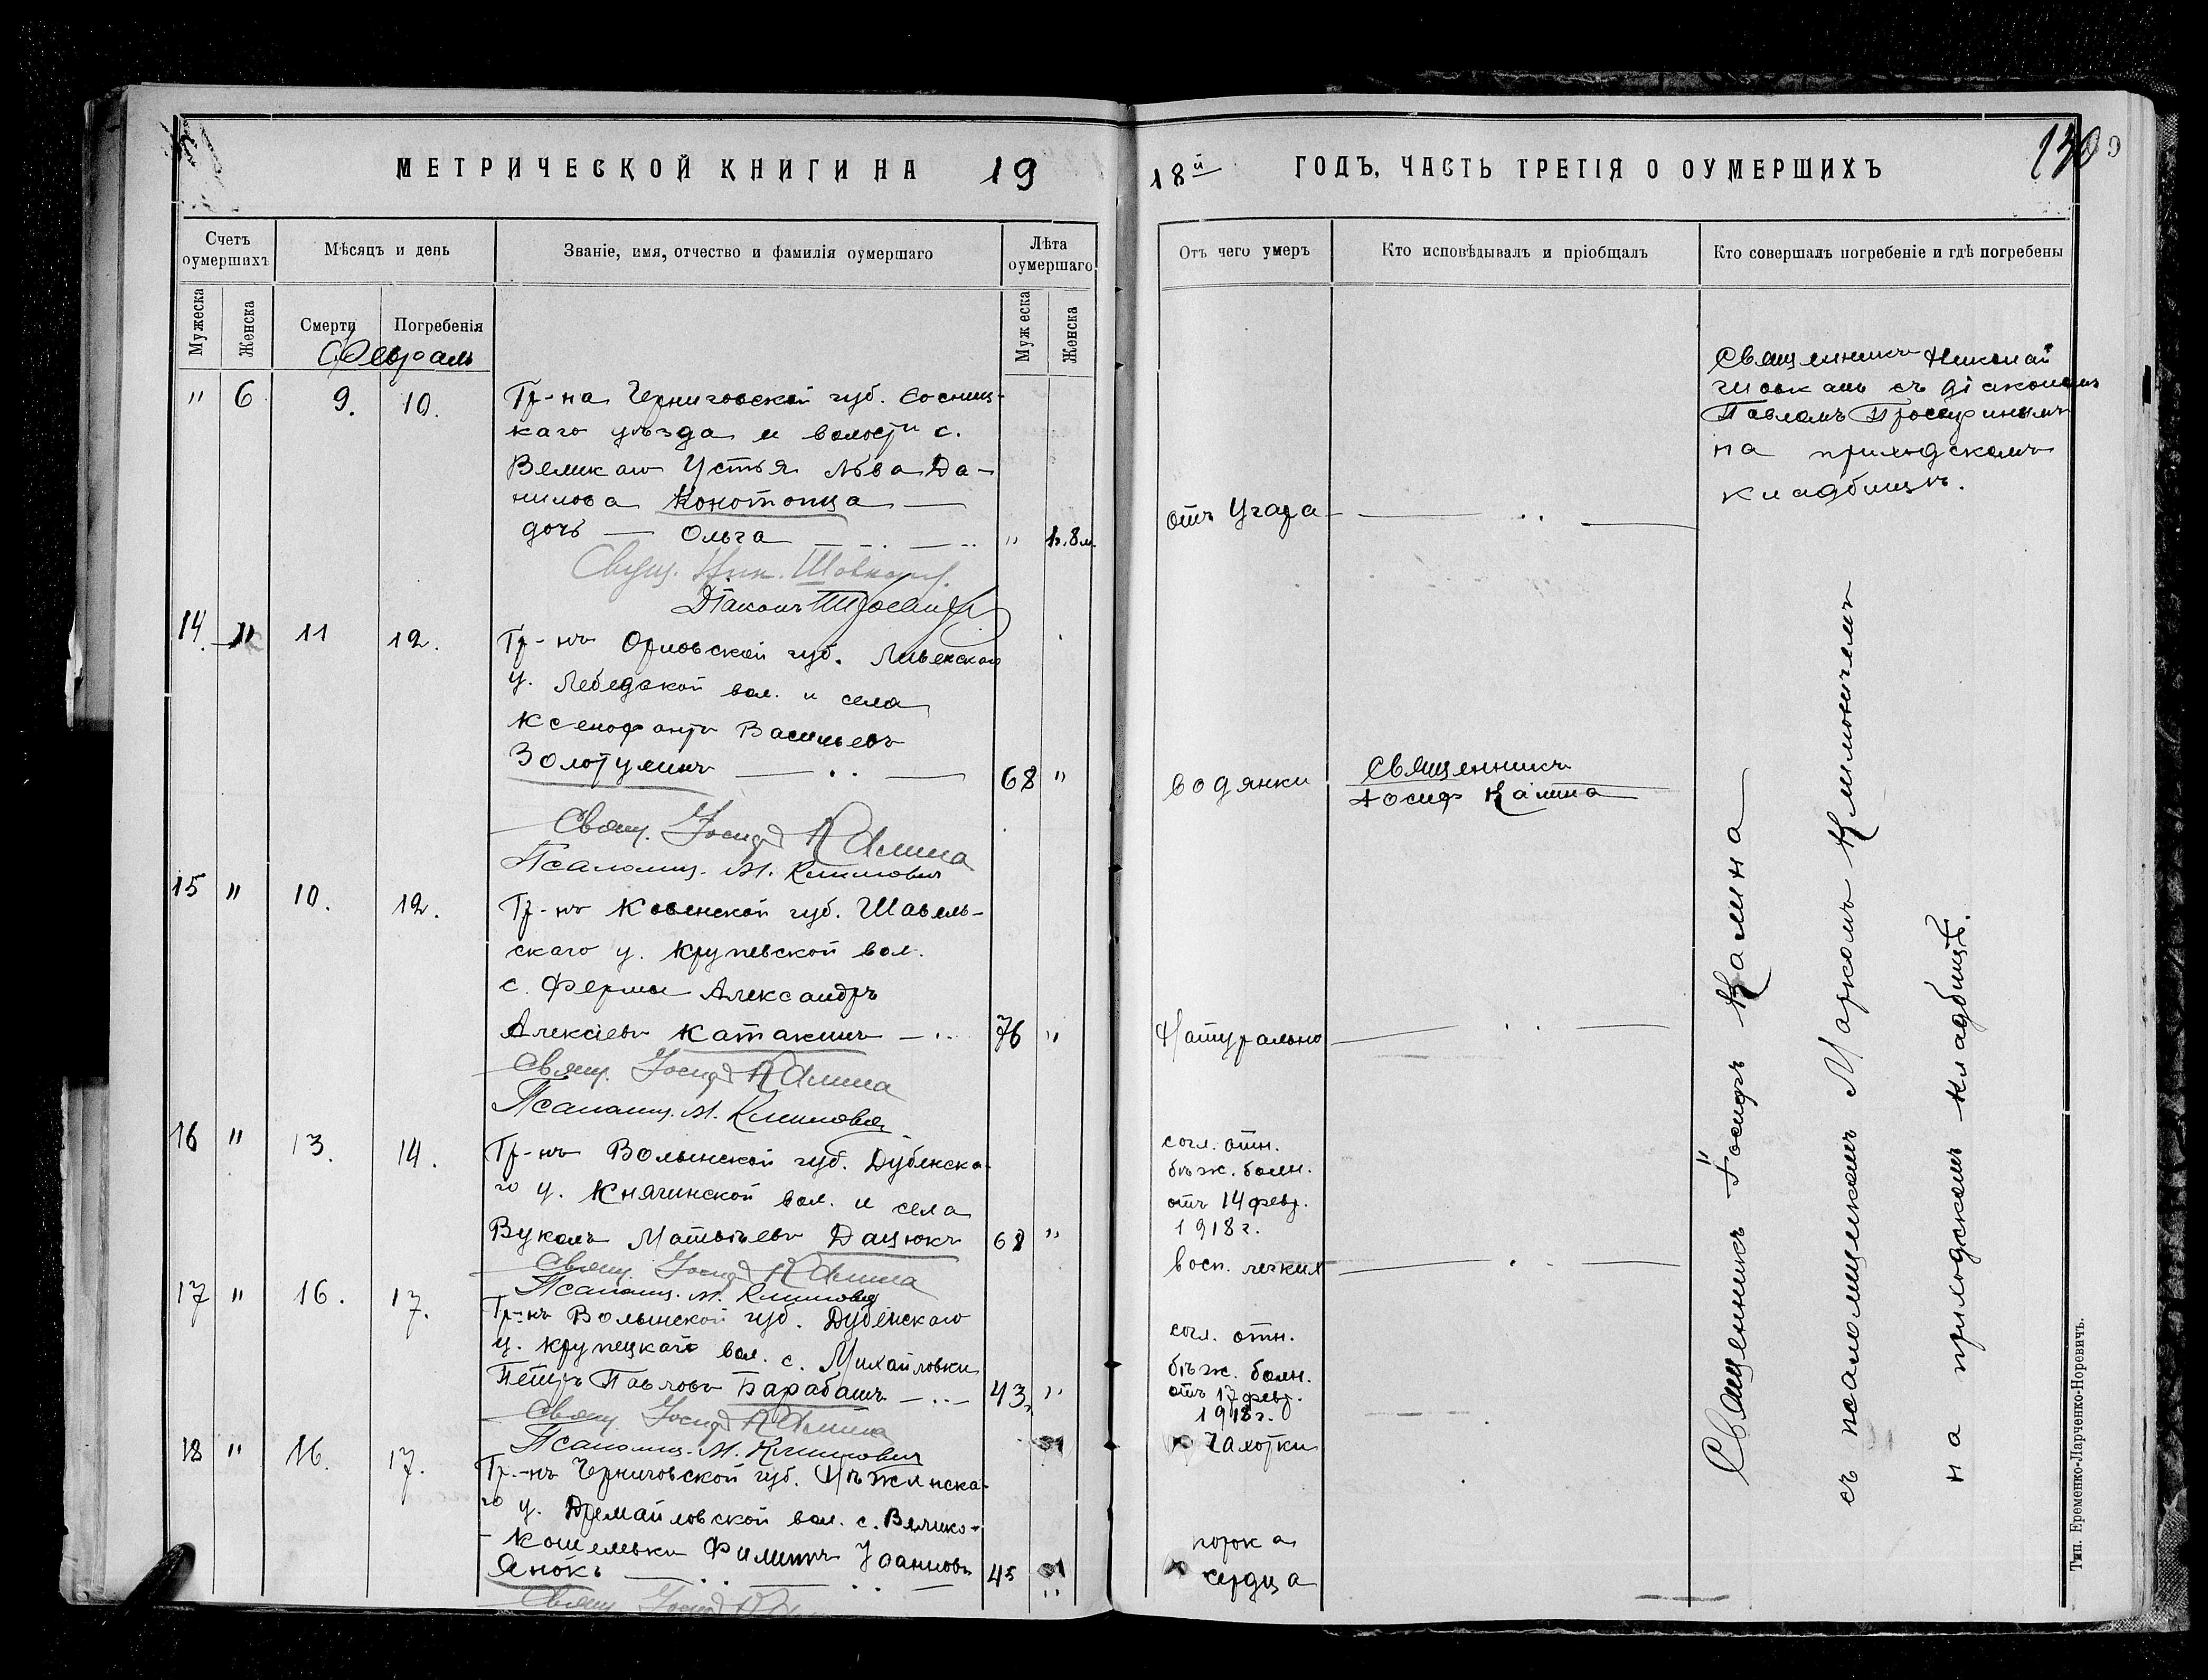 МЕТРИЧЕСКОЙ КНИГИ НА 19
18й ГОДЪ, ЧАСТЬ ТРЕТІЯ О ОУМЕРШИХЪ
130
Счетъ оумершихъ
Мѣсяцъ и день
Званіе, имя, отчество и фамилія оумершаго
Лѣта оумершаго
Отъ чего умеръ
Кто исповѣдывалъ и пріобщалъ
Кто совершалъ погребеніе и гдѣ погребены
Мужеска
Женска
Смерти
Погребенія
Мужеска
Женска
Февраль
" 6 9. 10.
Гр-на Черниговской губ. Сосниц-
каго уѣзда и волости с.
Великаго Устья Льва Да-
нилова Конотопца —
дочь — Ольга " 1г. 8м.
отъ Угара
Священникъ Николай
Шовкань съ діакономъ
Павломъ
на приходскомъ
кладбищѣ.
Свящ. Ник.
Діаконъ
14. " 11 12.
Гр-нъ Орловской губ. Ливенскаго
у. Лебедской вол. и села
Ксенофонтъ Васильевъ
Золотухинъ 68 "
водянки
Священникъ
Іосифъ Калина
Свящ. Іосифъ Калина
Псаломщ. М. Климович
15 " 10. 12.
Гр-нъ Ковенской губ. Шавель-
скаго у. Крупевской вол.
с. Фермы Александръ
Алексіевъ Катакинъ 76 "
Натурально
Свящ. Іосифъ Калина
Псаломщ. М. Климович
16 " 13. 14.
Гр-нъ Волынской губ. Дубенска-
го у. Княгинской вол. и села
Вуколъ Матвѣевъ Дацюкъ 68 "
согл. отн.
бѣж. больн.
отъ 14 февр.
1918 г.
восп. легкихъ
Свящ. Іосифъ Калина
Псаломщ. М. Климович
17 " 16. 17.
Гр-нъ Волынской губ. Дубенскаго
у. Крупецкаго вол. с. Михайловки
Петръ Павловъ Барабашъ 43 "
согл. отн.
бѣж. больн.
отъ 17 февр.
1918 г.
чахотки
Свящ. Іосифъ Калина
Псаломщ. М. Климович
18 " 16. 17.
Гр-нъ Черниговской губ. Нѣжинска-
го у. Дремайловской вол. с. Велико-
Кошелевки Филиппъ Іоанновъ
Янокъ 45 "
порока
сердца
Свящ. Іосифъ
Священникъ Іосифъ Калина
съ псаломщикомъ Маркомъ Климовичемъ
на приходскомъ кладбищѣ.
Тип. Еременко-Ларченко-Норевичъ.